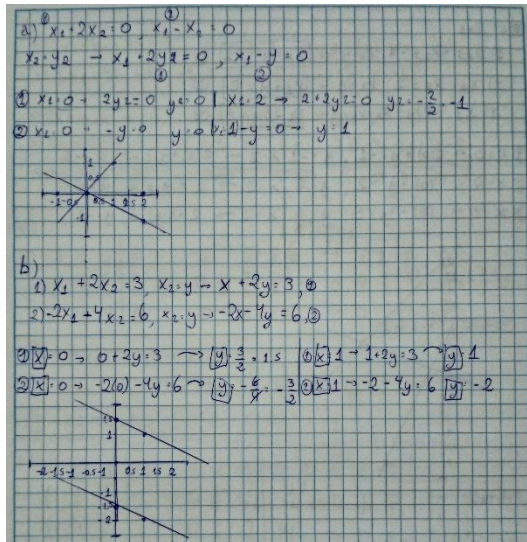 ① ②
a) x₁+2x₂=0, x₁-x₂=0
x₂=y₂ → x₁+2y₂=0, x₁-y=0
① ②
① x₁=0 → 2y₂=0 y₂=0 | x₁=2 → 2+2y₂=0 y₂=-2/2=-1
② x₁=0 → -y=0 y=0 | x=1 1-y=0 → y=1
1
0.5
-1 -0.5 0.5 1 1.5 2
-1
b)
1) x₁+2x₂=3, x₂=y → x+2y=3, ①
2) -2x₁+4x₂=6, x₂=y → -2x-4y=6, ②
① x=0 → 0+2y=3 → y=3/2=1.5 | ① x=1 → 1+2y=3 → y=1
② x=0 → -2(0)-4y=6 → y=-6/4=-3/2 | ② x=1 → -2-4y=6 y=-2
1.5
1
-2 -1.5 -1 -0.5 0.5 1 1.5 2
-1
-1.5
-2